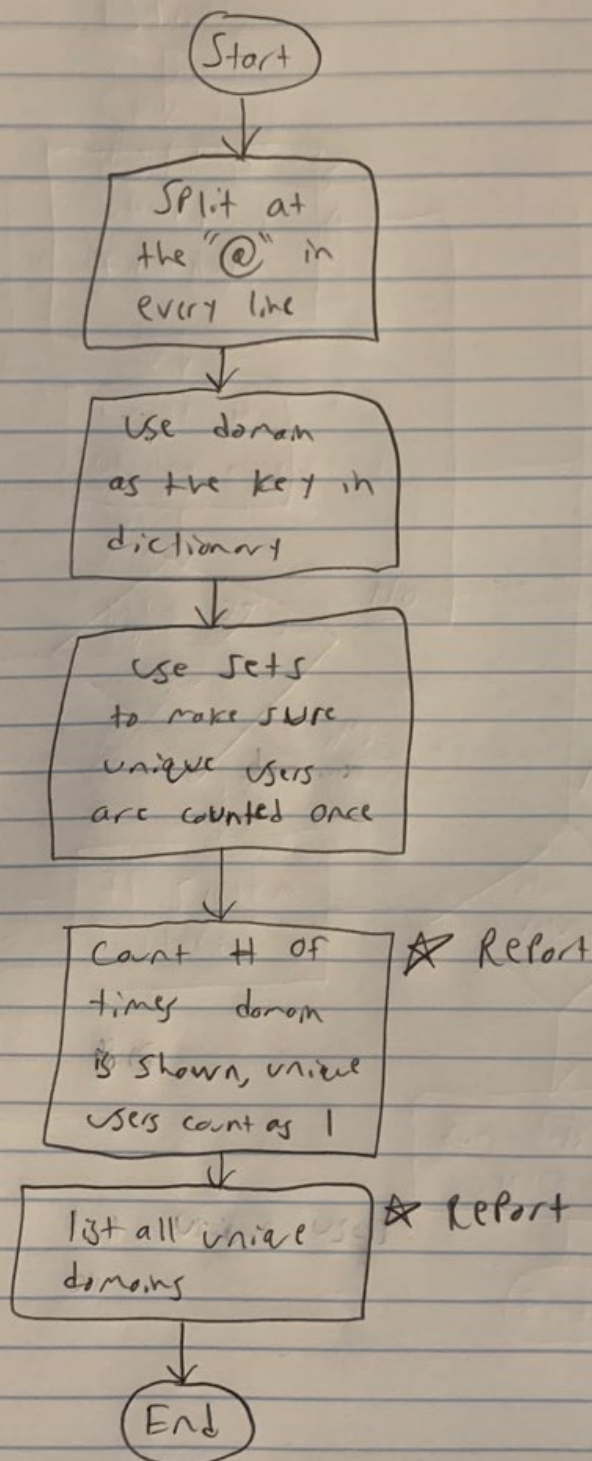 Start
Split at
the "@" in
every line
use domain
as the key in
dictionary
use sets
to make sure
unique users
are counted once
Count # of
times domain
is shown, unique
users count as 1
★ Report
list all unique
domains
★ Report
End